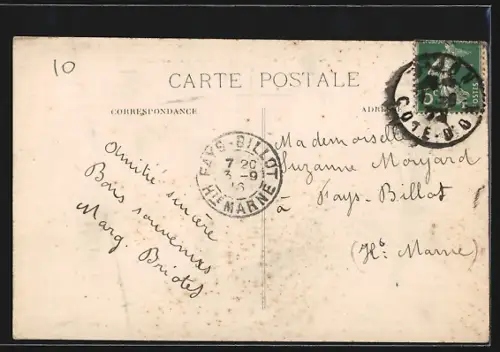 10
CARTE POSTALE
CORRESPONDANCE
Amitié sincère
Bons souvenirs
Marg. Briotet
FAYS-BILLOT
7 20
3 -9
16
Hte MARNE
COTE-D'OR
5
POSTES
Mademoiselle
Suzanne Monjard
à Fays-Billot
(Hte Marne)